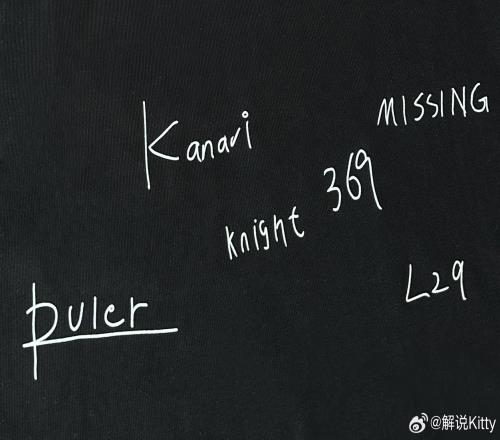 Kanari
MISSING
369
knight
L29
puler
@解说Kitty